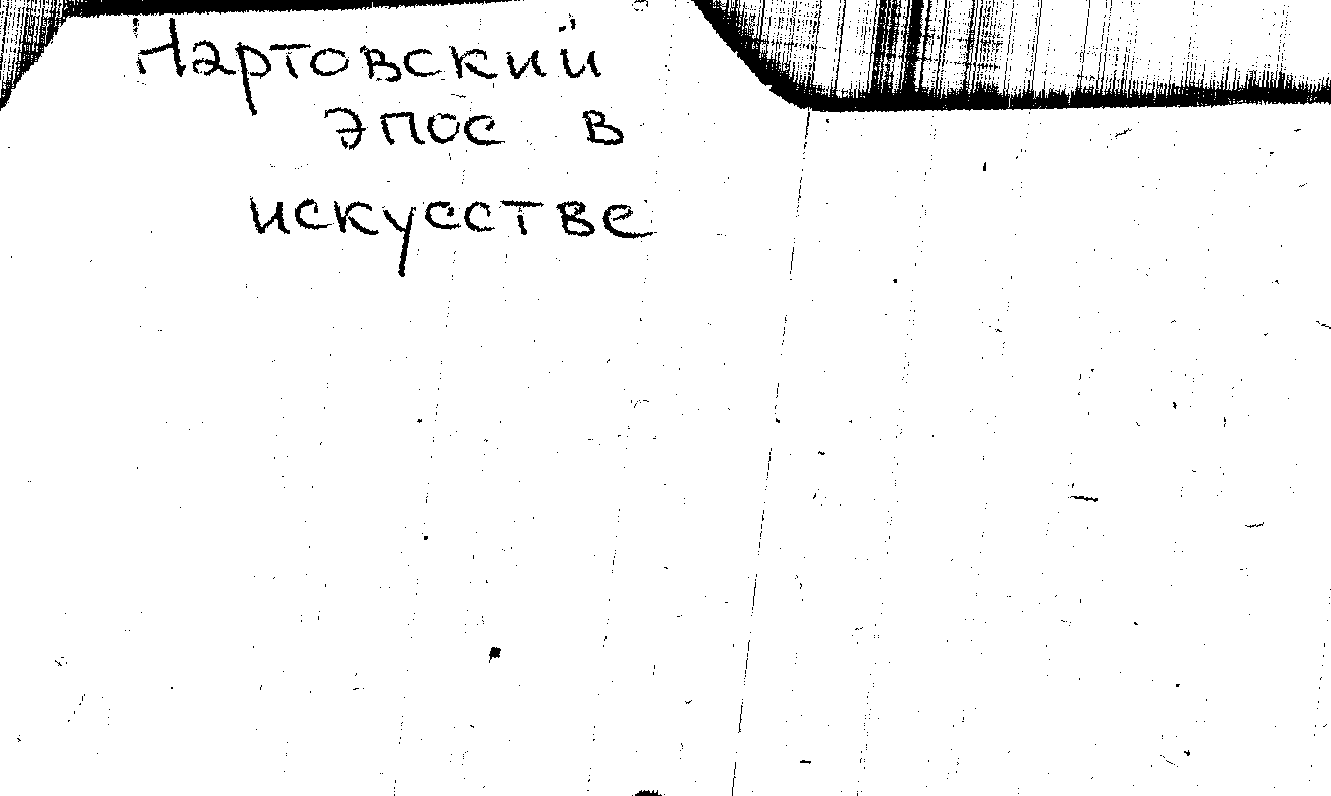 Нартовский
эпос в
искусстве